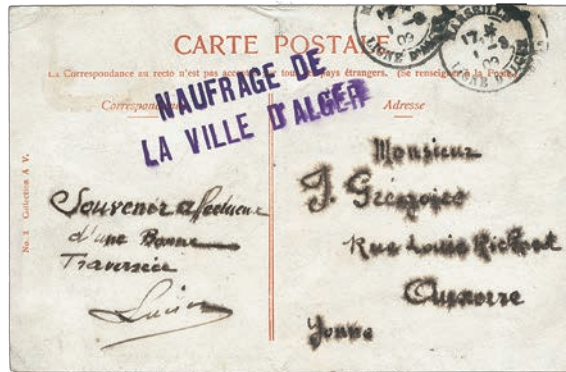 CARTE POSTALE
La Correspondance au recto n'est pas acceptée par tous les pays étrangers. (Se renseigner à la Poste)
Correspondance
Adresse
NAUFRAGE DE
LA VILLE D'ALGER
MARSEILLE
17
1 -9
09
LIGNE D'ALGER
Souvenir affectueux
d'une Bonne
Traversée
Lucien
Monsieur
J. Grégoire
Rue Louis Richard
Auxerre
Yonne
No. 1 Collection A V.